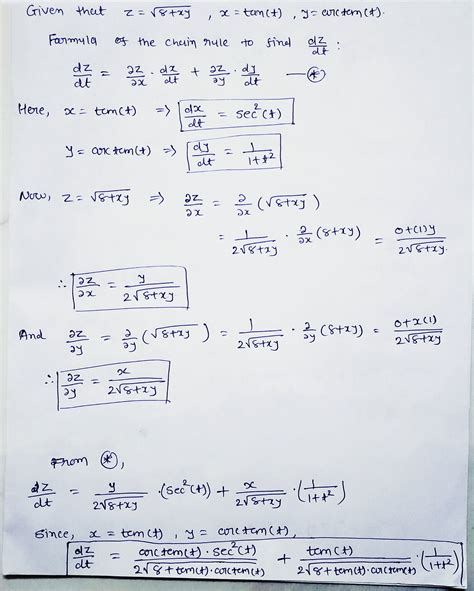 Given that z = √8+xy , x = tan(t) , y = arctan(t).
Formula of the chain rule to find dz/dt :
dz/dt = ∂z/∂x · dx/dt + ∂z/∂y · dy/dt — ⊛
Here, x = tan(t) => dx/dt = sec²(t)
y = arctan(t) => dy/dt = 1/1+t²
Now, z = √8+xy => ∂z/∂x = ∂/∂x (√8+xy)
= 1/2√8+xy · ∂/∂x (8+xy) = 0+(1)y/2√8+xy
∴ ∂z/∂x = y/2√8+xy
And ∂z/∂y = ∂/∂y (√8+xy) = 1/2√8+xy · ∂/∂y (8+xy) = 0+x(1)/2√8+xy
∴ ∂z/∂y = x/2√8+xy
From ⊛,
dz/dt = y/2√8+xy · (sec²(t)) + x/2√8+xy · (1/1+t²)
Since, x = tan(t) , y = arctan(t),
dz/dt = arctan(t)·sec²(t)/2√8+tan(t)·arctan(t) + tan(t)/2√8+tan(t)·arctan(t) · (1/1+t²)